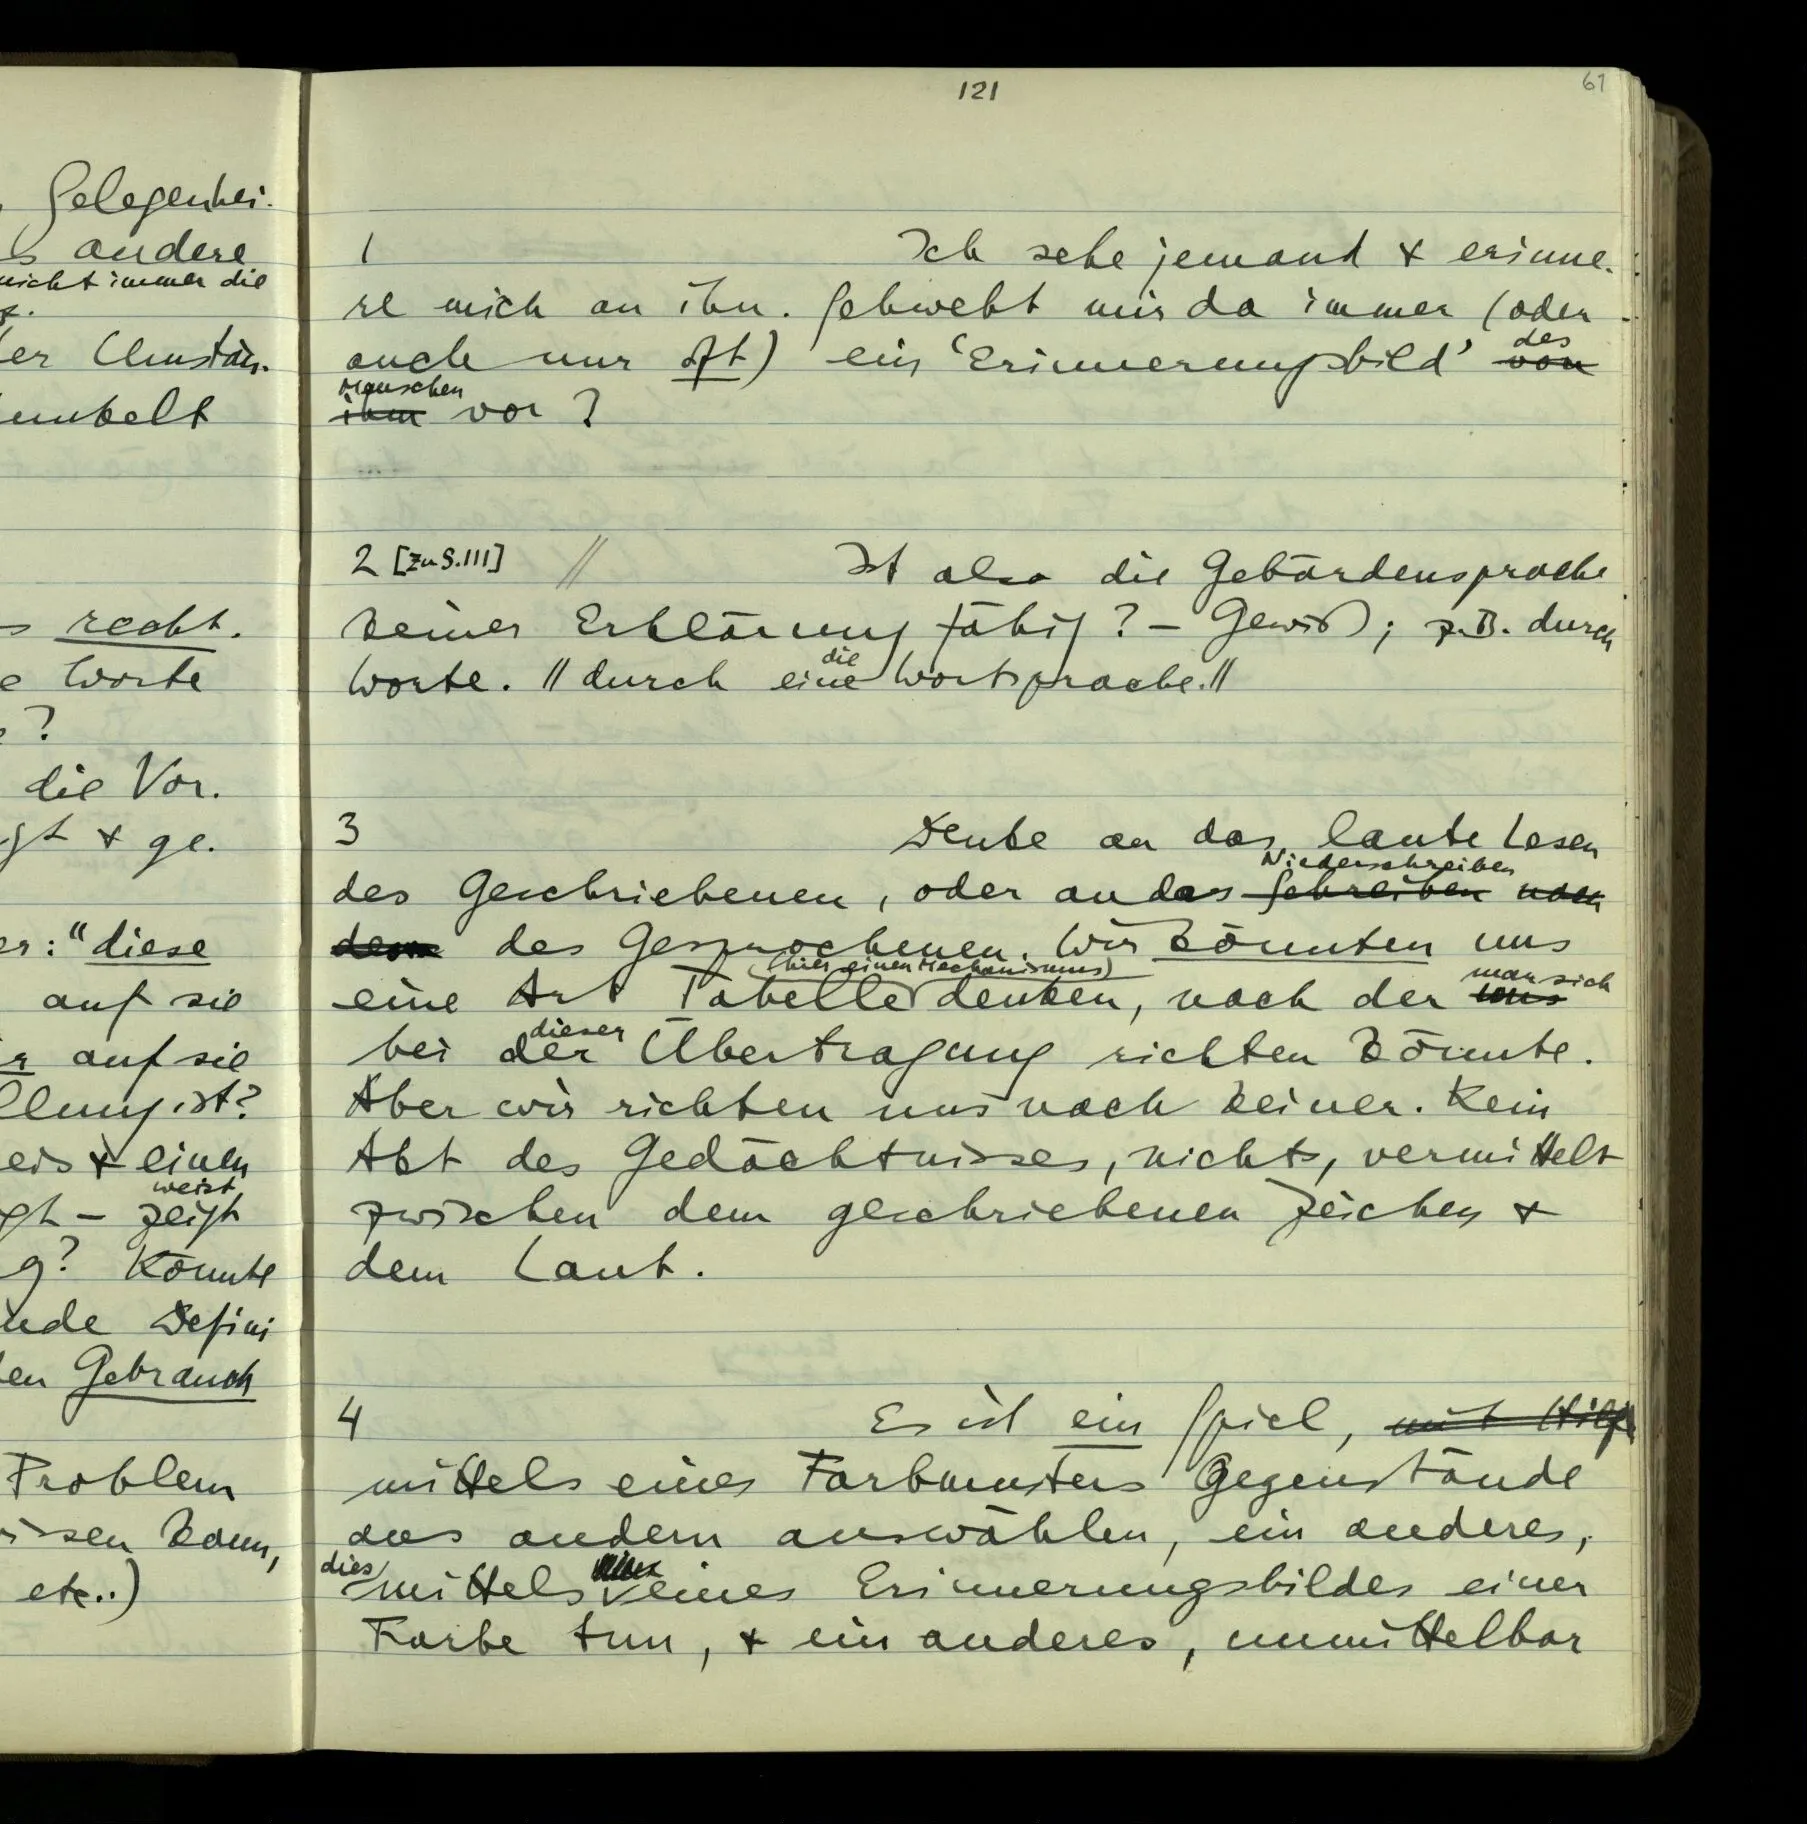 Gelegenhei-
andere
nicht immer die
er Umstän-
umkelt
recht.
Worte
?
die Vor-
gt & ge-
er: "diese
auf sie
auf sie
llung ist?
eis & einen
weist
gt – zeigt
g? Könnte
nde Defini
en Gebrauch
Problem
issen kann,
etc..)
121
61
1 Ich sehe jemand & erinne-
re mich an ihn. Schwebt mir da immer (oder
auch nur oft) ein 'Erinnerungsbild' von
des
Menschen
ihm vor?
2 [Zu S.111] // Ist also die Gebärdensprache
keiner Erklärung fähig? – Gewiß; z.B. durch
die
Worte. // durch eine Wortsprache.//
3 Denke an das laute Lesen
Niederschreiben
des Geschriebenen, oder an das Schreiben nach
dem des Gesprochenen. Wir könnten uns
(hier einen Mechanismus)
man sich
eine Art Tabelle denken, nach der uns
dieser
bei der Übertragung richten könnte.
Aber wir richten uns nach keiner. Kein
Akt des Gedächtnisses, nichts, vermittelt
zwischen dem geschriebenen Zeichen &
dem Laut.
4 Es ist ein Spiel, mit Hilfe
mittels eines Farbmusters Gegenstände
aus andern auswählen, ein anderes,
dies
mittels eines Erinnerungsbildes einer
Farbe tun, & ein anderes, unmittelbar